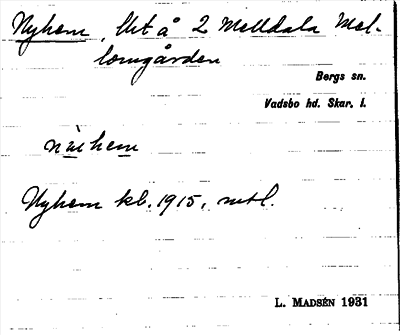 Nyhem, lht å 2 Melldala Mel-
lomgården
Bergs sn.
Vadsbo hd. Skar. l.
Nyhem kl. 1915, mtl.
L. MADSÉN 1931